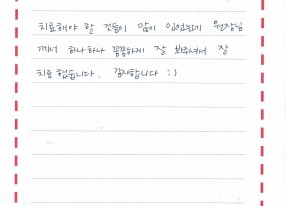 치료해야 할 것들이 많이 있었는데 원장님
께서 하나하나 꼼꼼하게 잘 봐주셔서 잘
치료 했습니다. 감사합니다 :)